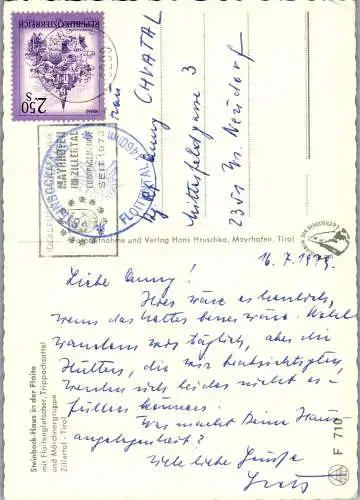 REPUBLIK ÖSTERREICH
2.50
S
MAYRHOFEN
IM ZILLERTAL
EUROPAGEMEINDE
SEIT 1973
FLOITENTAL
Frau
Anny CHVATAL
Mitterfeldgasse 3
2351 Wr. Neudorf
Verlag Hans Hruschka, Mayrhofen, Tirol
16.7.1979.
Liebe Anny!
Hier wäre es herrlich,
wenn das Wetter besser wäre.
wandern wir täglich, aber die
Hütten, die wir beabsichtigten,
werden sich leider nicht er-
füllen können.
Was macht Deine Haus-
angelegenheit?
Viele liebe Grüße
Steinbock-Haus in der Floite
mit Floitengletscher, Trippachsattel
und Mörchnergruppe
Zillertal - Tirol
F 710